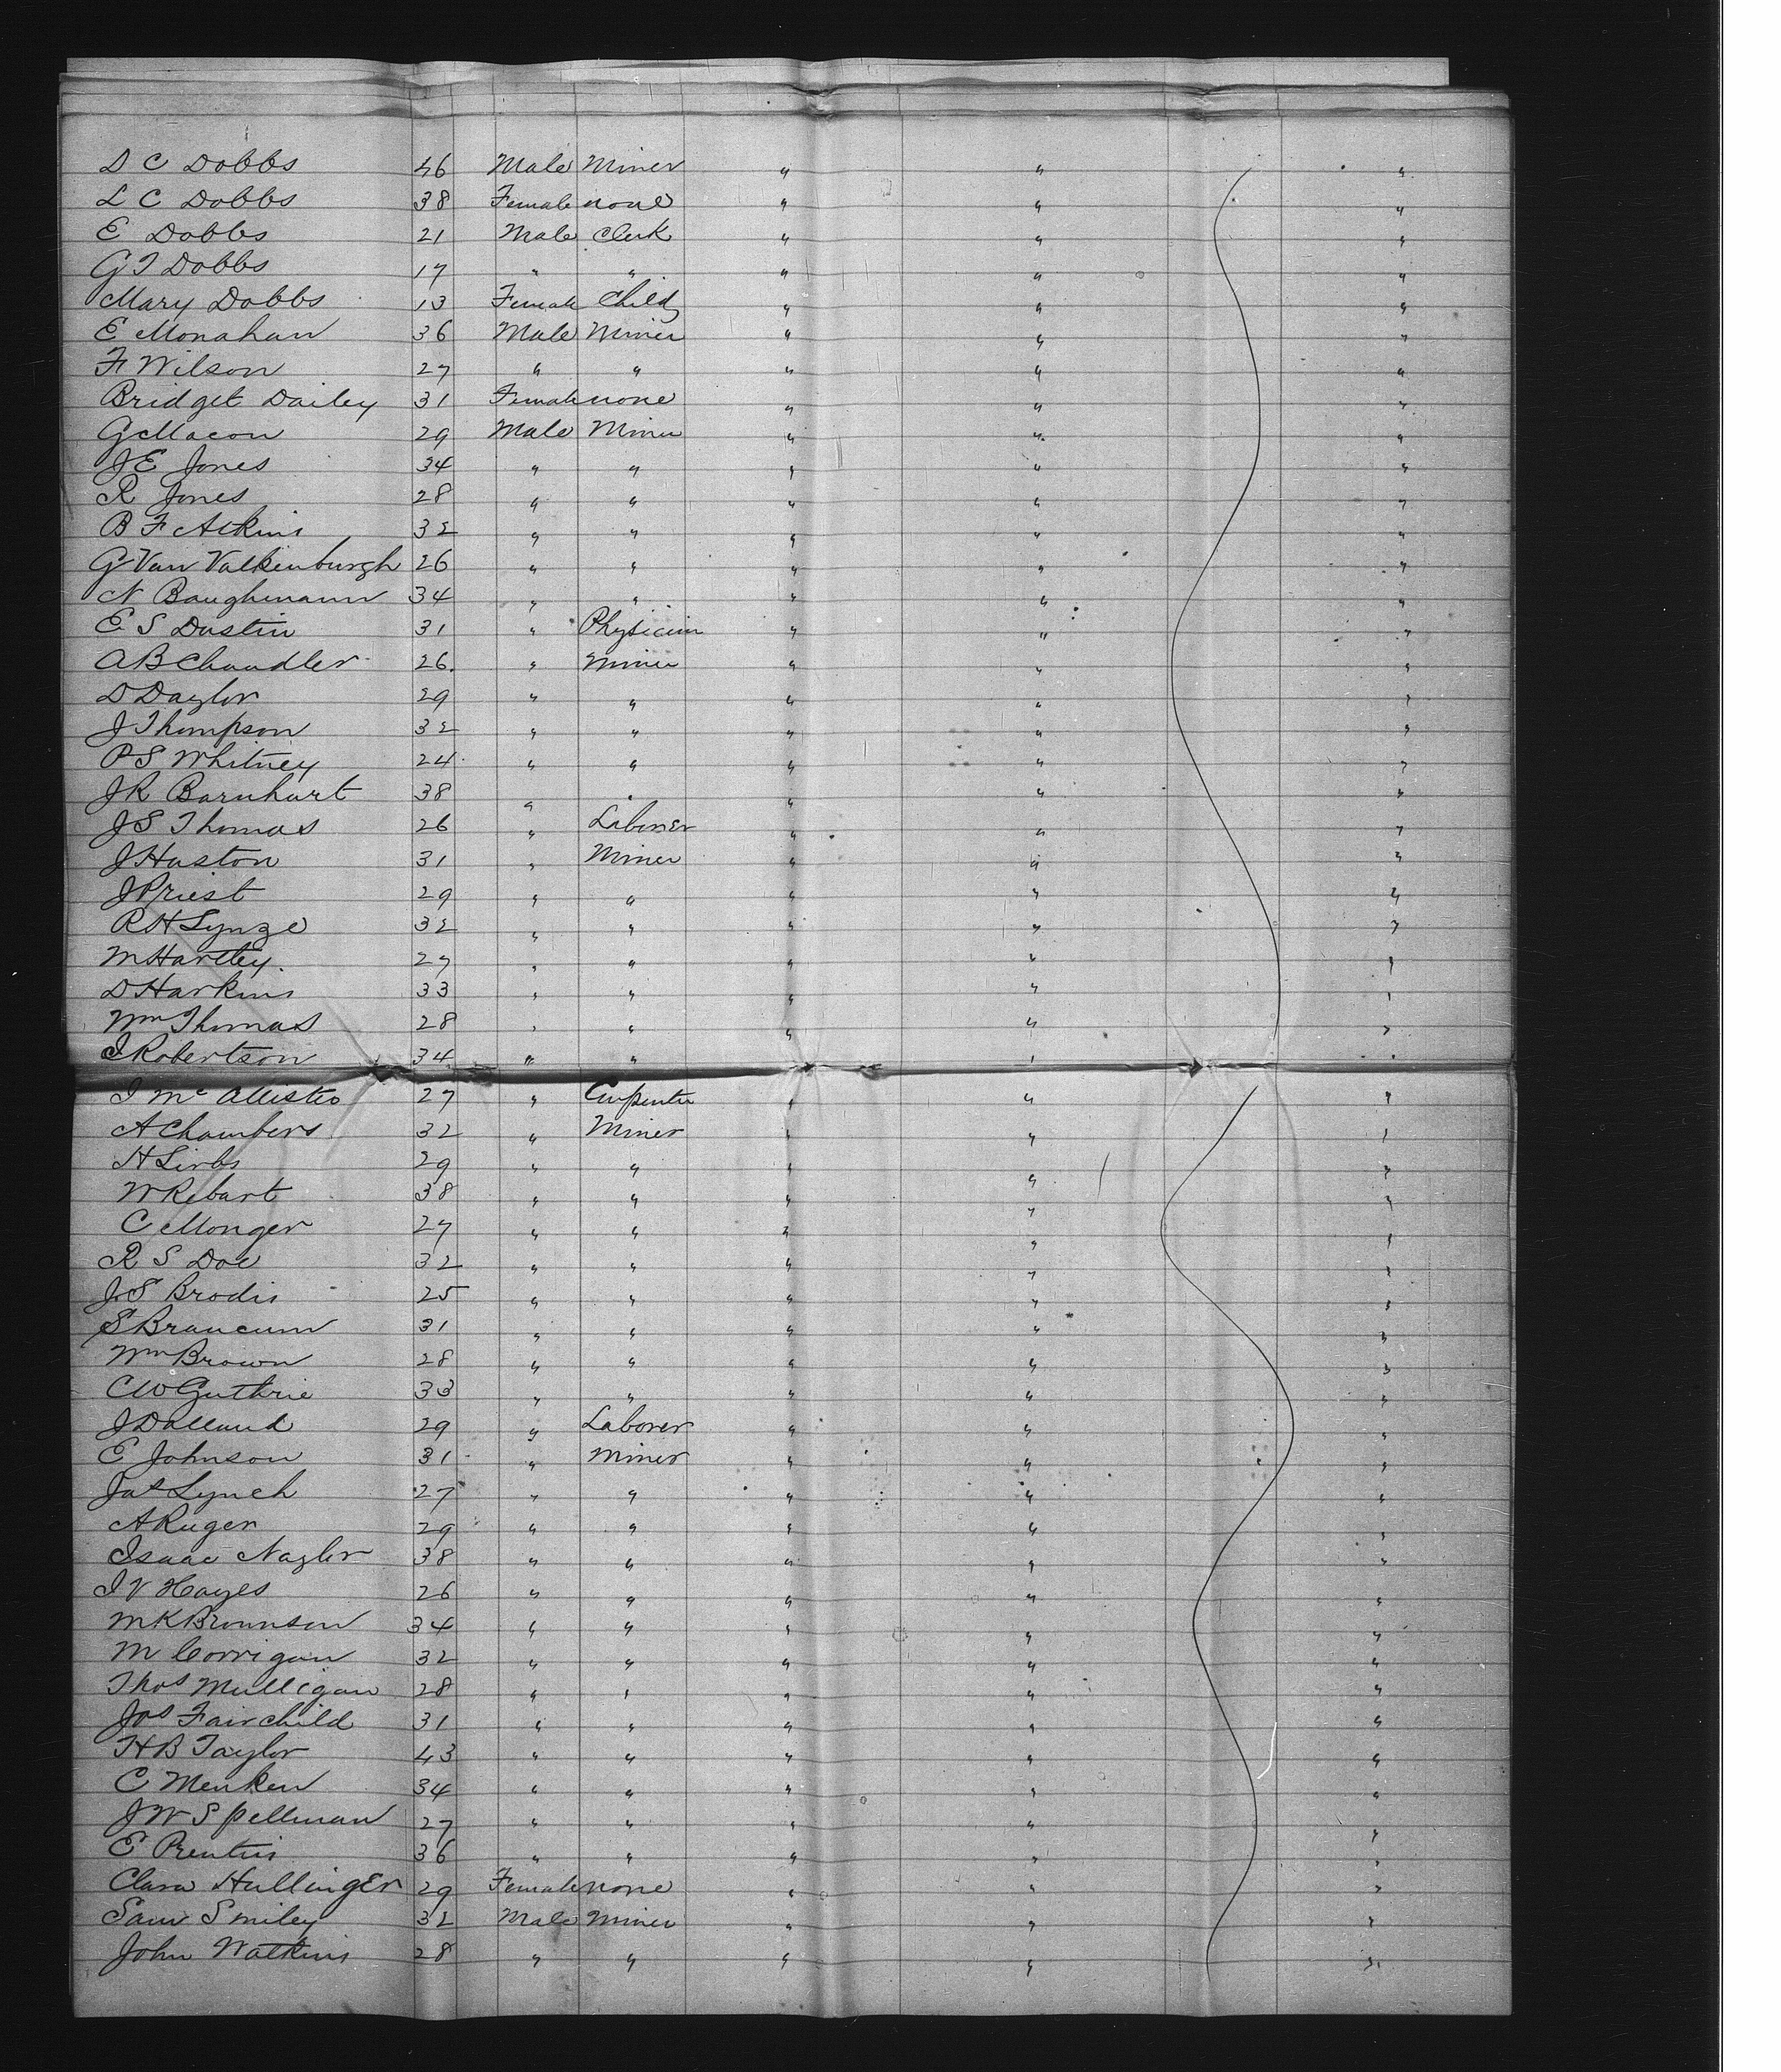 D C Dobbs 46 Male Miner " " "
L C Dobbs 38 Female none " " "
E Dobbs 21 Male Clerk " " "
G T Dobbs 17 " " " " "
Mary Dobbs 13 Female Child " " "
E Monahan 36 Male Miner " " "
F Wilson 27 " " " " "
Bridget Dailey 31 Female none " " "
G Macon 29 Male Miner " " "
J E Jones 34 " " " " "
R Jones 28 " " " " "
B F Atkins 32 " " " " "
G Van Valkenburgh 26 " " " " "
N Baughmann 34 " " " " "
E S Dustin 31 " Physician " " "
A B Chandler 26 " Miner " " "
D Daylor 29 " " " " "
J Thompson 32 " " " " "
P S Whitney 24 " " " " "
J R Barnhart 38 " " " " "
J S Thomas 26 " Laborer " " "
J Huston 31 " Miner " " "
J Priest 29 " " " " "
R H Lynze 32 " " " " "
M Hartley 27 " " " " "
D Harkins 33 " " " " "
Wm Thomas 28 " " " " "
J Robertson 34 " " " " "
J McAllister 27 " Carpenter " " "
A Chambers 32 " Miner " " "
H Lirbs 29 " " " " "
W Rebart 38 " " " " "
C Monger 27 " " " " "
R S Doe 32 " " " " "
J S Brodis 25 " " " " "
S Braucum 31 " " " " "
Wm Brown 28 " " " " "
C W Guthrie 33 " " " " "
J Dalland 29 " Laborer " " "
E Johnson 31 " Miner " " "
Jas Lynch 27 " " " " "
A Ruger 29 " " " " "
Isaac Naylor 38 " " " " "
I V Hayes 26 " " " " "
M K Brownson 34 " " " " "
M Corrigan 32 " " " " "
Thos Mulligan 28 " " " " "
Jos Fairchild 31 " " " " "
H B Taylor 43 " " " " "
C Menken 34 " " " " "
J W Spellman 27 " " " " "
E Prentis 36 " " " " "
Clara Hullinger 29 Female none " " "
Sam Smiley 32 Male Miner " " "
John Watkins 28 " " " " "